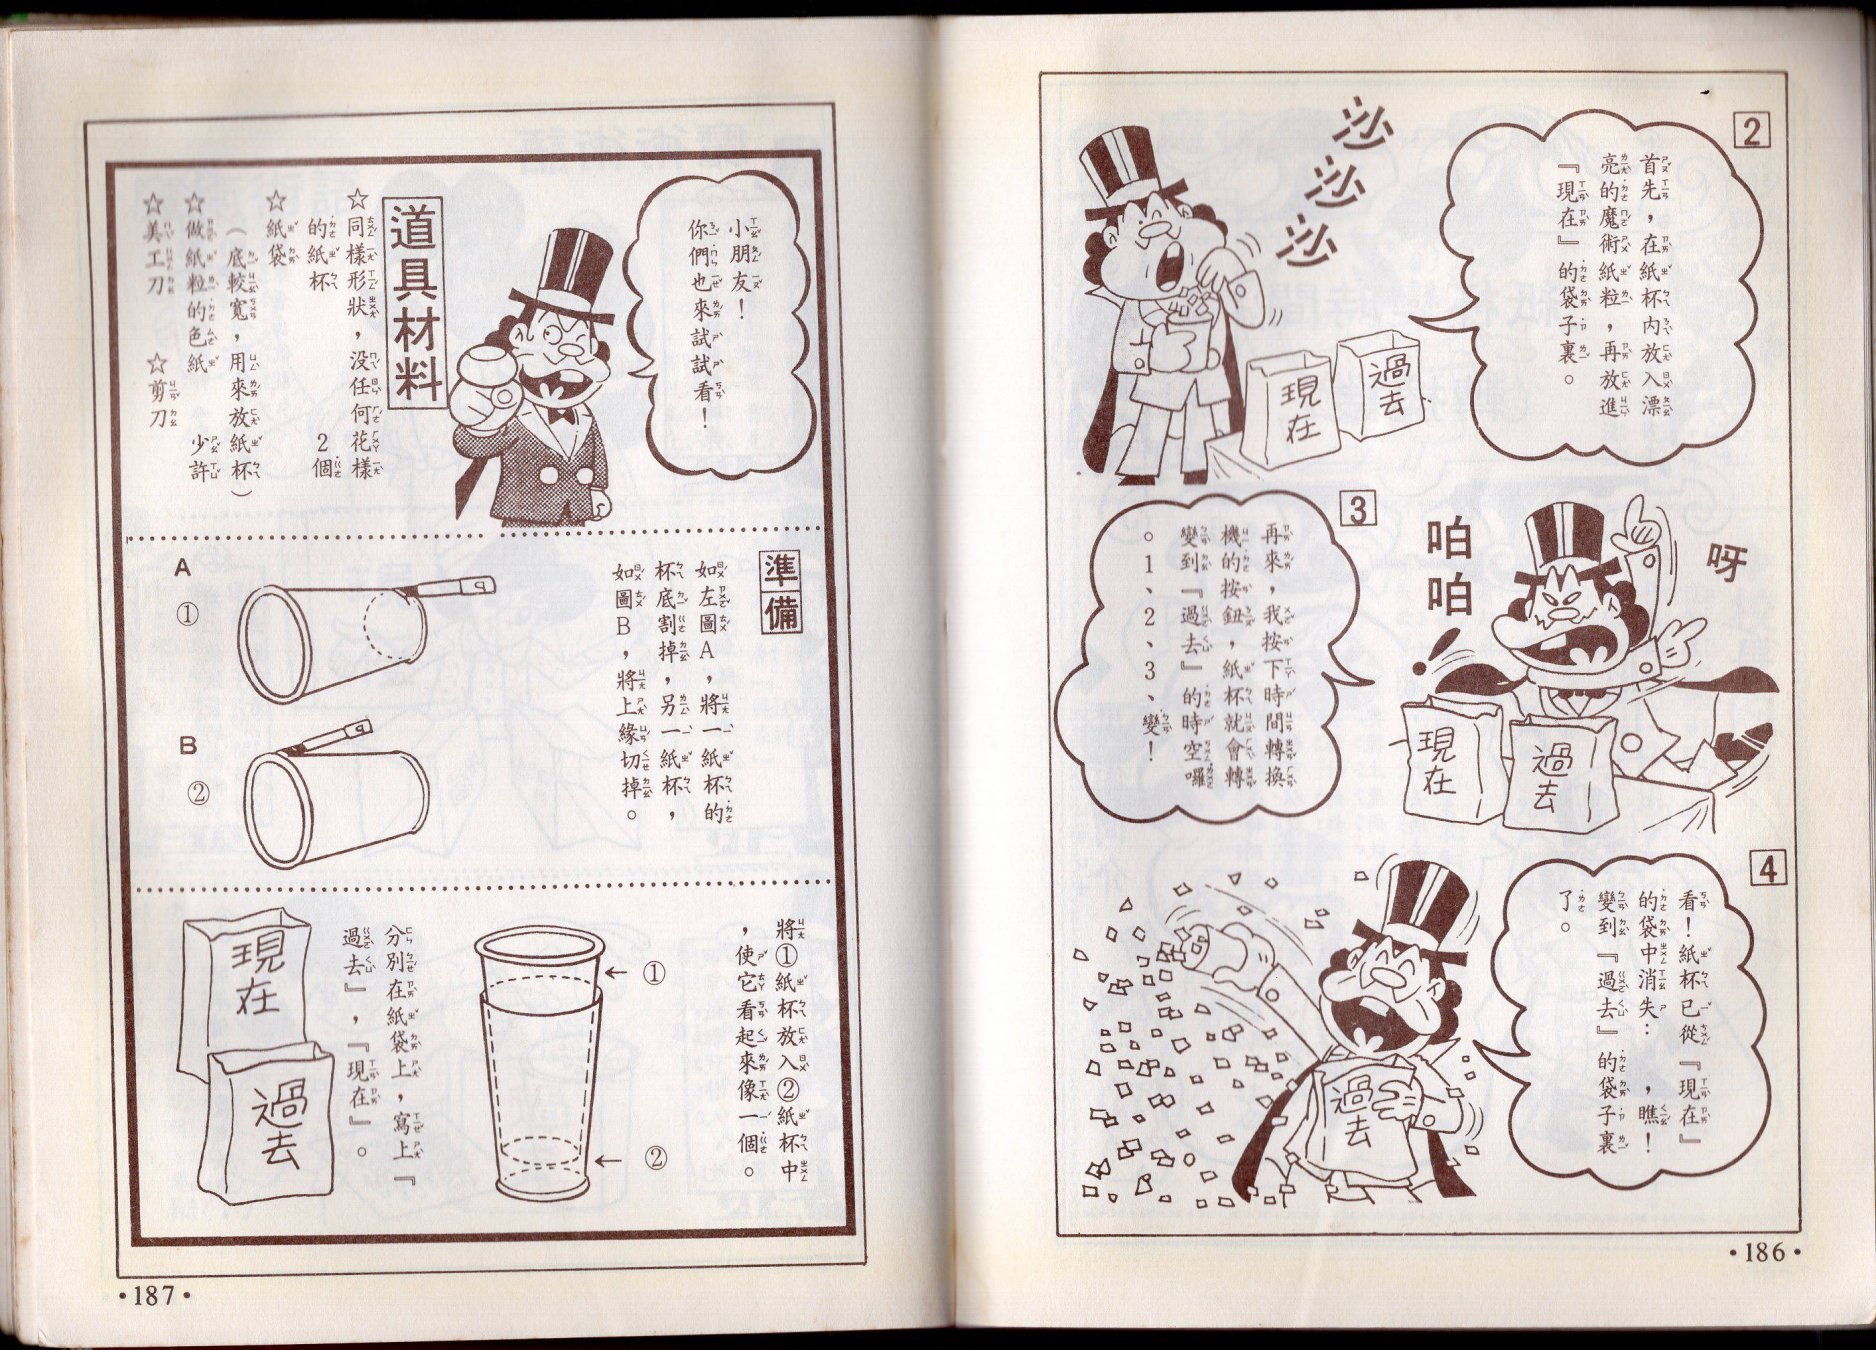 2
首先，在紙杯內放入漂
亮的魔術紙粒，再放進
『現在』的袋子裏。
沙沙沙
現在
過去
3
再來，我按下時間轉換
機的按鈕，紙杯就會轉
變到『過去』的時空囉
。1、2、3、變！
呀
咱咱！
現在
過去
4
看！紙杯已從『現在』
的袋中消失…，瞧！
變到『過去』的袋子裏
了。
過去
·186·
小朋友！
你們也來試試看！
道具材料
☆同樣形狀，没任何花樣
的紙杯 2個
☆紙袋
（底較寬，用來放紙杯）
☆做紙粒的色紙 少許
☆美工刀 ☆剪刀
準備
如左圖A，將一紙杯的
杯底割掉，另一紙杯，
如圖B，將上緣切掉。
A
①
B
②
將①紙杯放入②紙杯中
，使它看起來像一個。
①
②
分別在紙袋上，寫上『
過去』，『現在』。
現在
過去
·187·